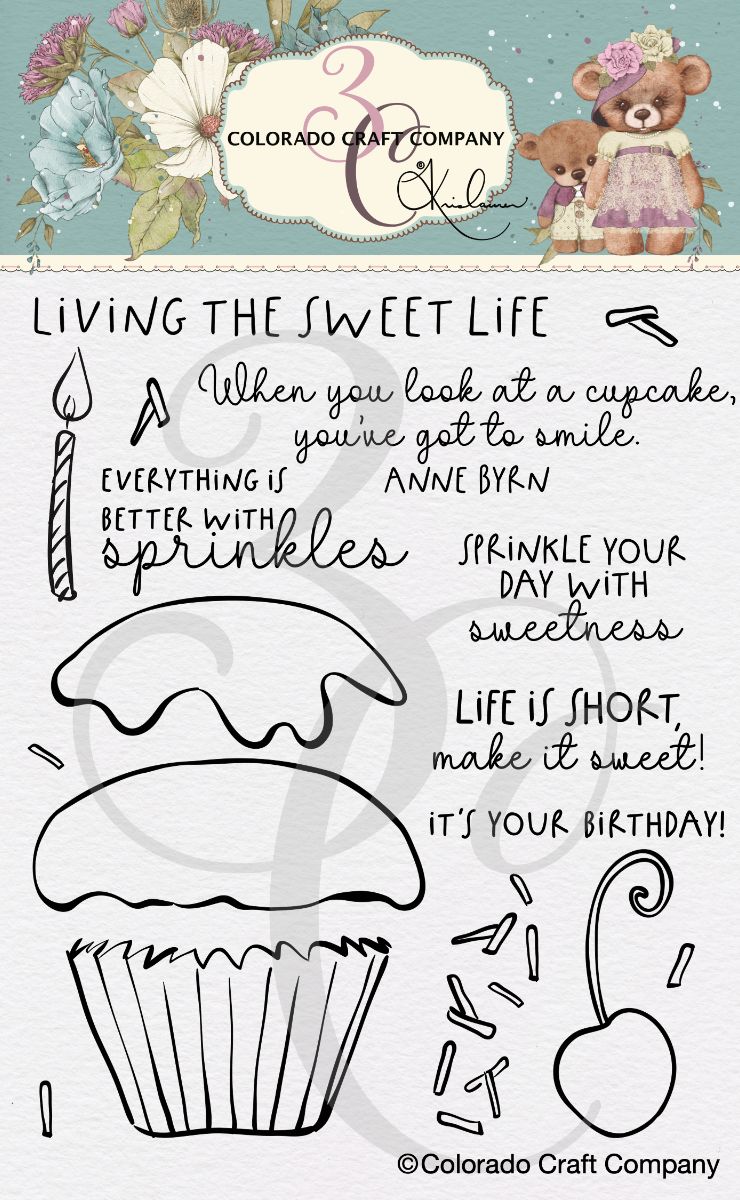 3C
COLORADO CRAFT COMPANY
©Krislainer
LiViNG THE SWEET LiFE
When you look at a cupcake,
you've got to smile.
EVERYTHING iS
BETTER WiTH
sprinkles
ANNE BYRN
SPRiNKLE YOUR
DAY WiTH
sweetness
LiFE iS SHORT,
make it sweet!
iT'S YOUR BiRTHDAY!
©Colorado Craft Company